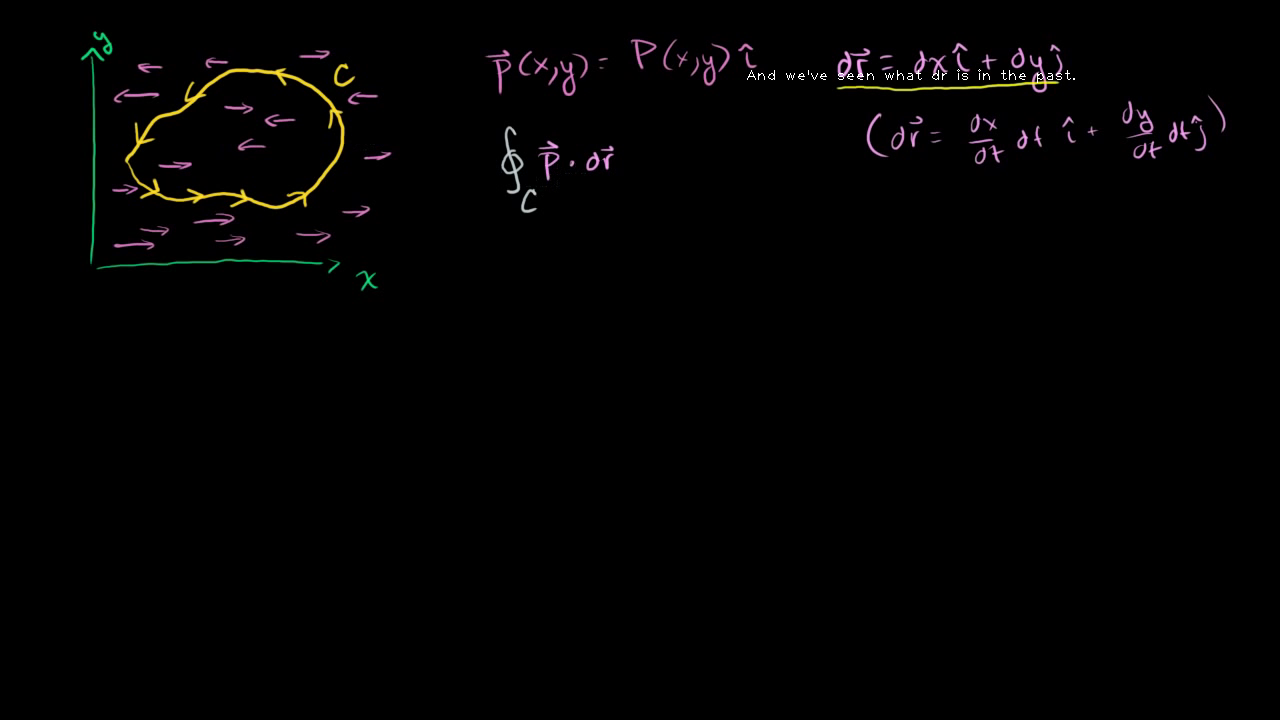 y
C
x
p⃗(x,y) = P(x,y) î
dr⃗ = dx î + dy ĵ
And we've seen what dr is in the past.
(dr⃗ = dx/dt dt î + dy/dt dt ĵ)
∮_C p⃗ · dr⃗